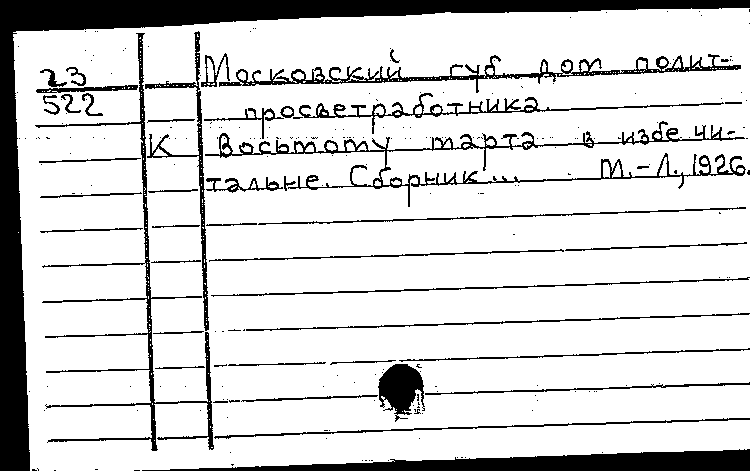 23 Московский губ. дом полит-
522 просветработника.
К Восьмому марта в избе чи-
тальне. Сборник... М.-Л., 1926.